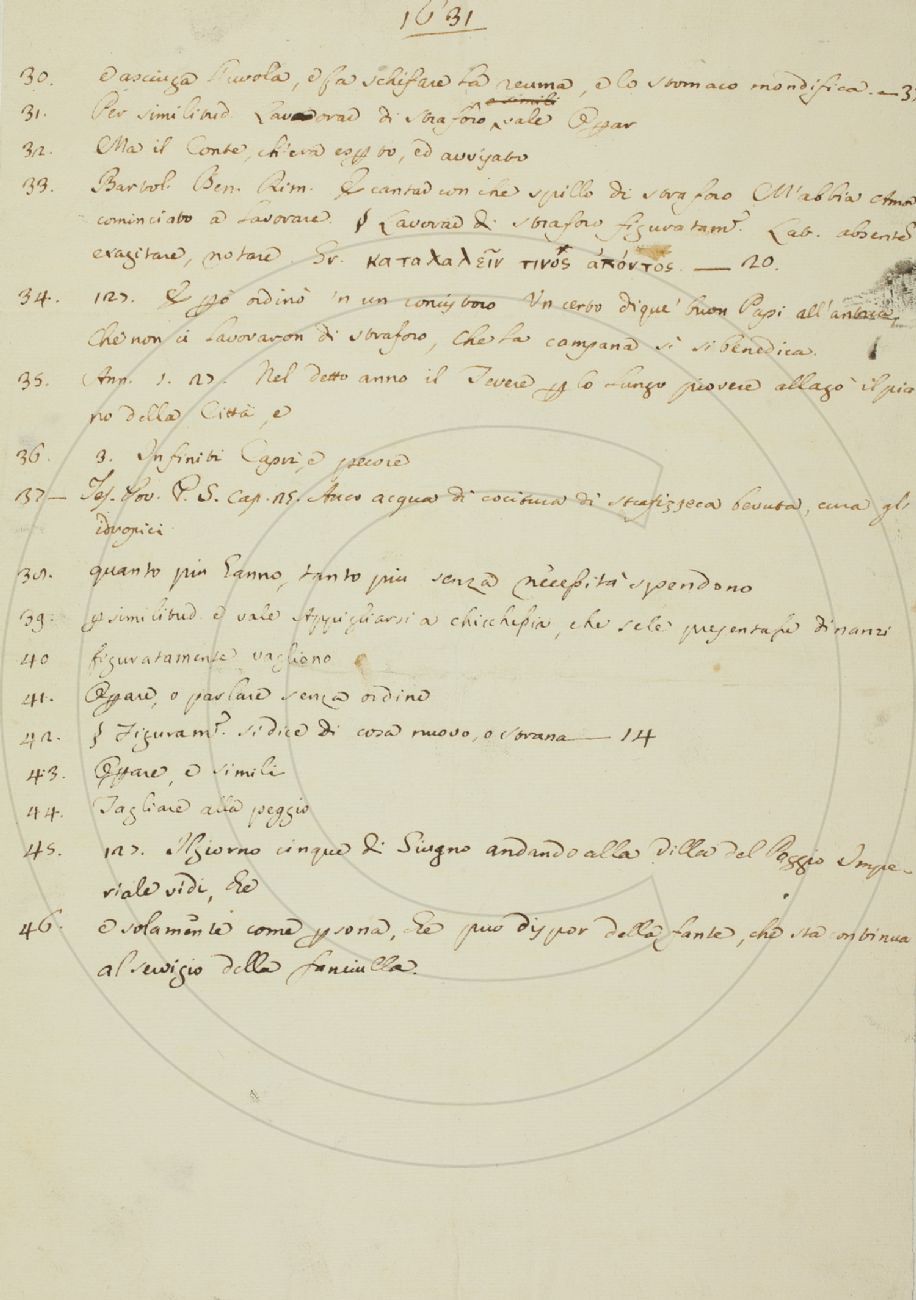 1631
30. e asciuga l'uvola, e fa schifare la reuma, e lo stomaco mondifica. — 3
31. Per similitud. Lavorare di straforo e simili vale Oppar
32. Ma il Conte, ch'era esp to, ed avvisato
33. Bartol. Ben. Rim. E cantad con che spillo di straforo M'abbia Amor
cominciato a lavorare. § Lavorar di straforo figuratam.e Lat. absente
exagitare, notare. Gr. καταλαλεῖν τινὸς ἀπόντος. — 20.
34. 127. E però ordinò 'n un concistoro Un certo di que' buon Papi all'antica
Che non ci lavoravon di straforo, Che la campana sì si benedica.
35. Ann. 1. 27. Nel detto anno il Tevere p lo lungo piovere allagò il pia
no della Città, e
36. 3. Infiniti Capri, e pecore
37 — Tes. Pov. P. S. cap. 25. Anco acqua di cocitura di strafizzeca bevuta, cura gl'
idropici
38. quanto più hanno, tanto più senza necessità spendono
39. p similitud. e vale Appigliarsi a chicchessia, che se le presentasse dinanzi
40 figuratamente vagliono
41. Oppare, o parlare senza ordine
42. § Figuram.e si dice di cosa nuova, o strana — 14
43. Oppare, e simili
44. Tagliare alla peggio
45. 127. Il giorno cinque di Giugno andando alla Villa del Poggio Impe-
riale vidi, che
46. e solamente come psona, che può dispor della fante, che sta continua
al servigio della fanciulla.